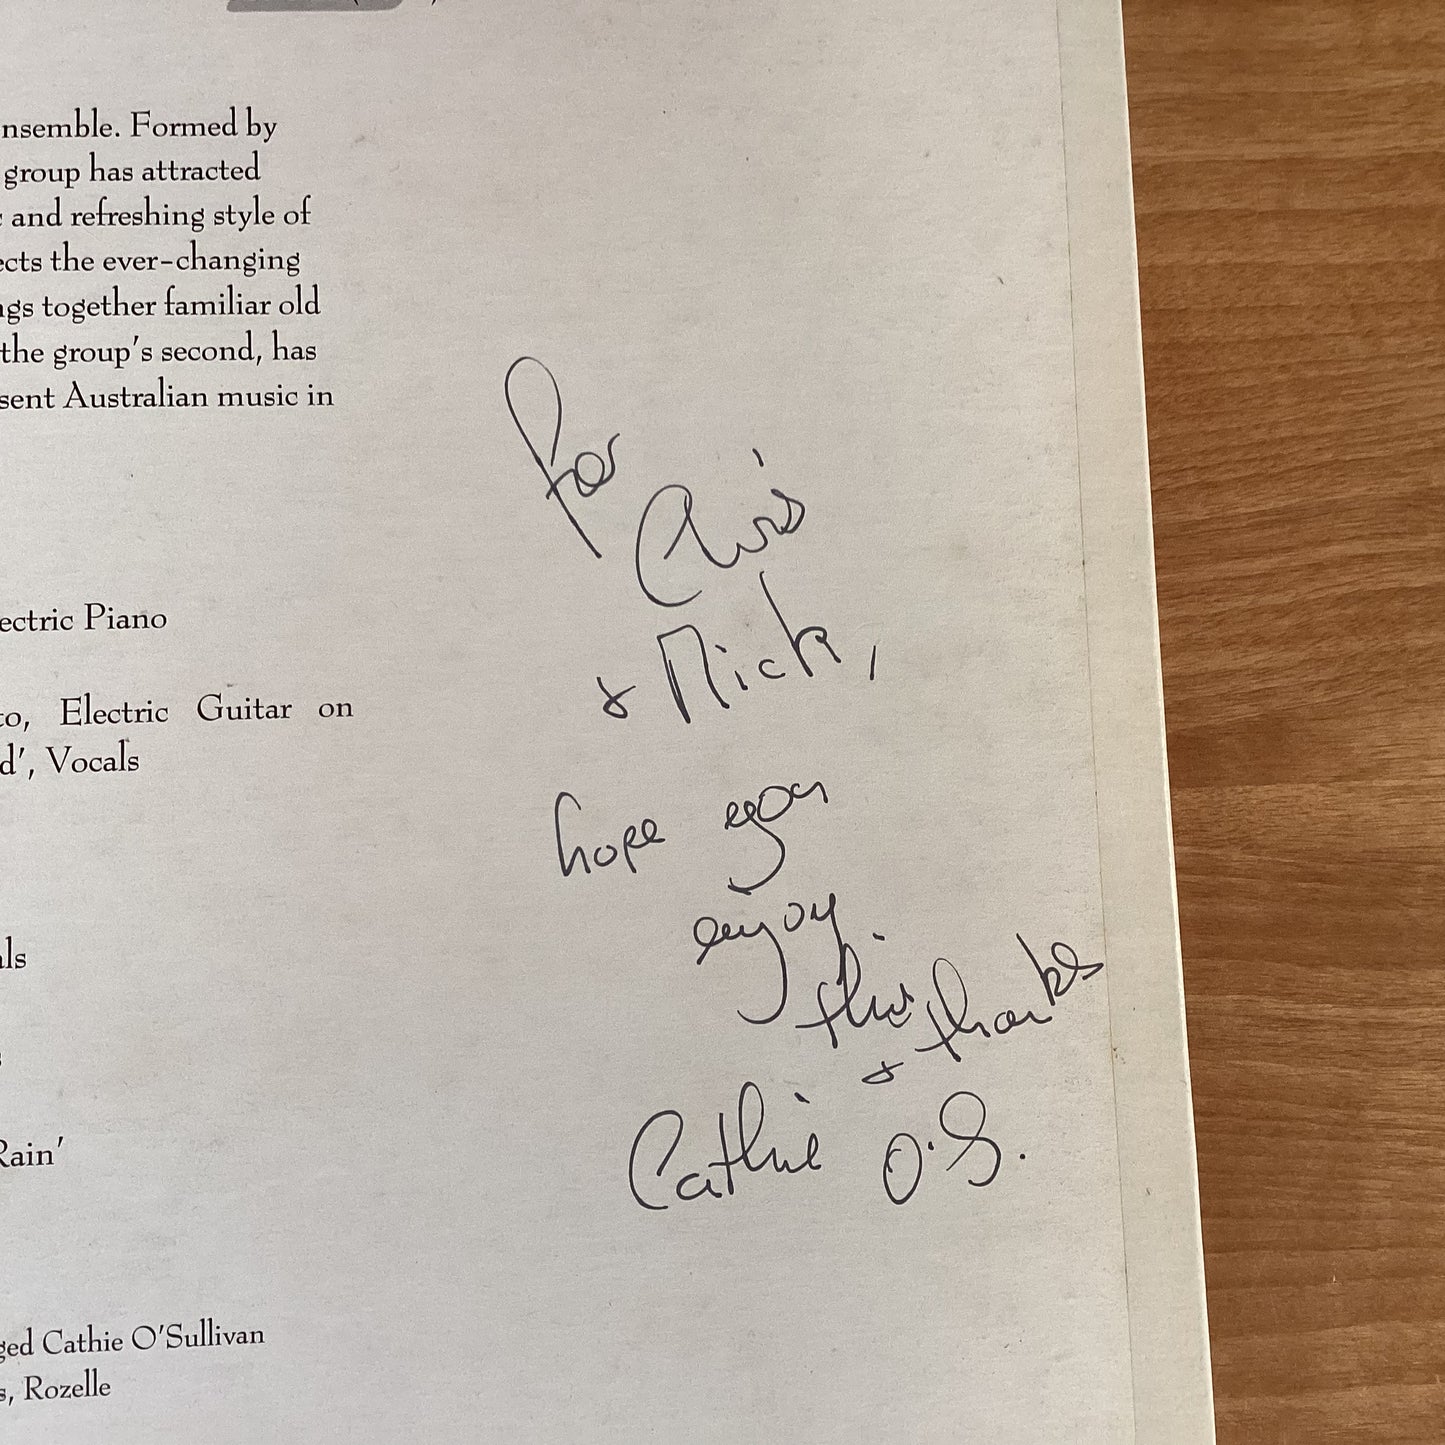 nsemble. Formed by
group has attracted
and refreshing style of
ects the ever-changing
ngs together familiar old
the group's second, has
sent Australian music in
for
Chris
& Nick,
ectric Piano
to, Electric Guitar on
d', Vocals
hope you
enjoy
this
& thanks
als
Cathie O'S.
Rain'
ged Cathie O'Sullivan
s, Rozelle